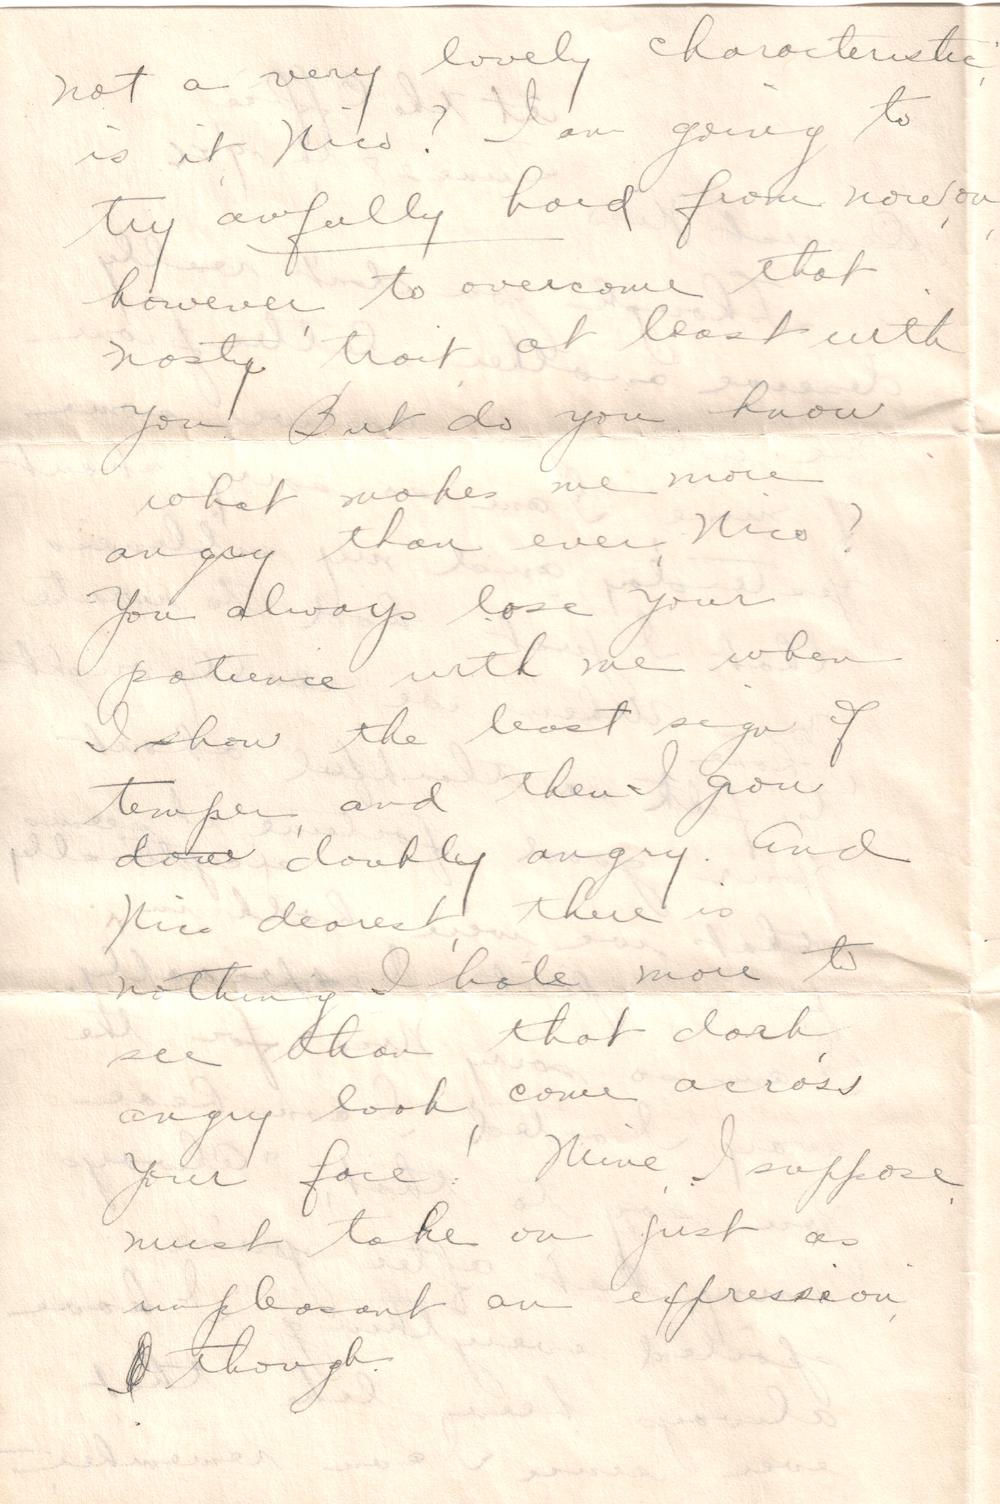 not a very lovely characteristic,
is it, Nico? I am going to
try awfully hard from now on,
however, to overcome that
nasty trait, at least with
you. But do you know
what makes me more
angry than ever, Nico?
You always lose your
patience with me when
I show the least sign of
temper, and then I grow
doubly angry. And
Nico dearest, there is
nothing I hate more to
see than that dark,
angry look, come across
your face. Mine, I suppose,
must take on just as
unpleasant an expression,
though.